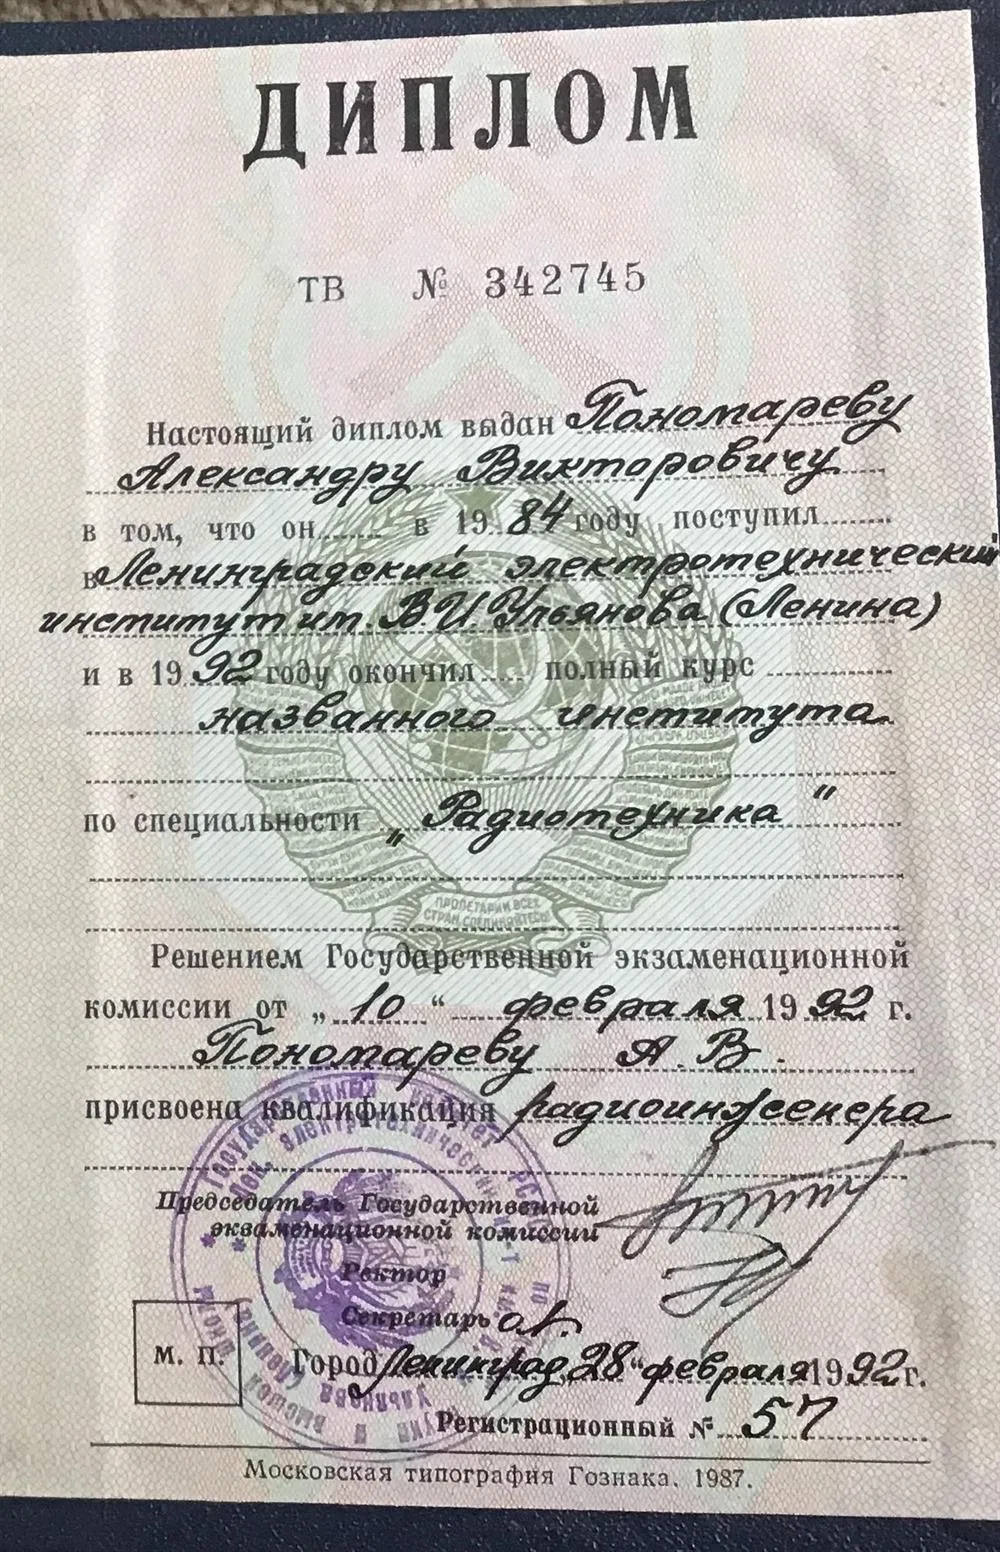 ДИПЛОМ
ТВ № 342745
Настоящий диплом выдан Пономареву
Александру Викторовичу
в том, что он в 1984 году поступил
в Ленинградский электротехнический
институт им. В.И. Ульянова (Ленина)
и в 1992 году окончил полный курс
названного института
по специальности „Радиотехника"
ПРОЛЕТАРИИ ВСЕХ
СТРАН, СОЕДИНЯЙТЕСЬ!
Решением Государственной экзаменационной
комиссии от „10“ февраля 1992 г.
Пономареву А. В.
присвоена квалификация радиоинженера
Председатель Государственной
экзаменационной комиссии
Ректор
Секретарь
М. П.
Город Ленинград 28 “ февраля 1992 г.
Регистрационный № 57
Московская типография Гознака. 1987.